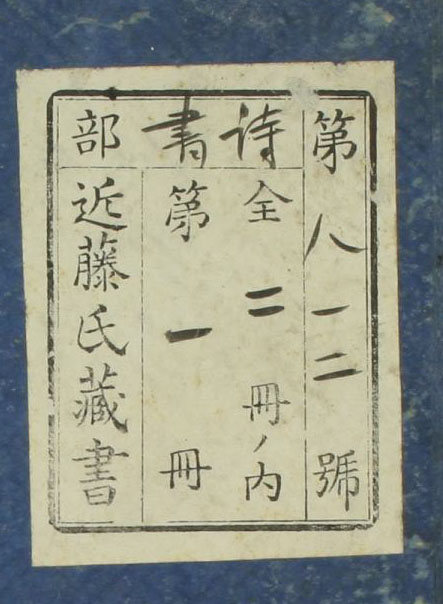 第八一二號
詩書部
全二冊ノ内
第一冊
近藤氏藏書